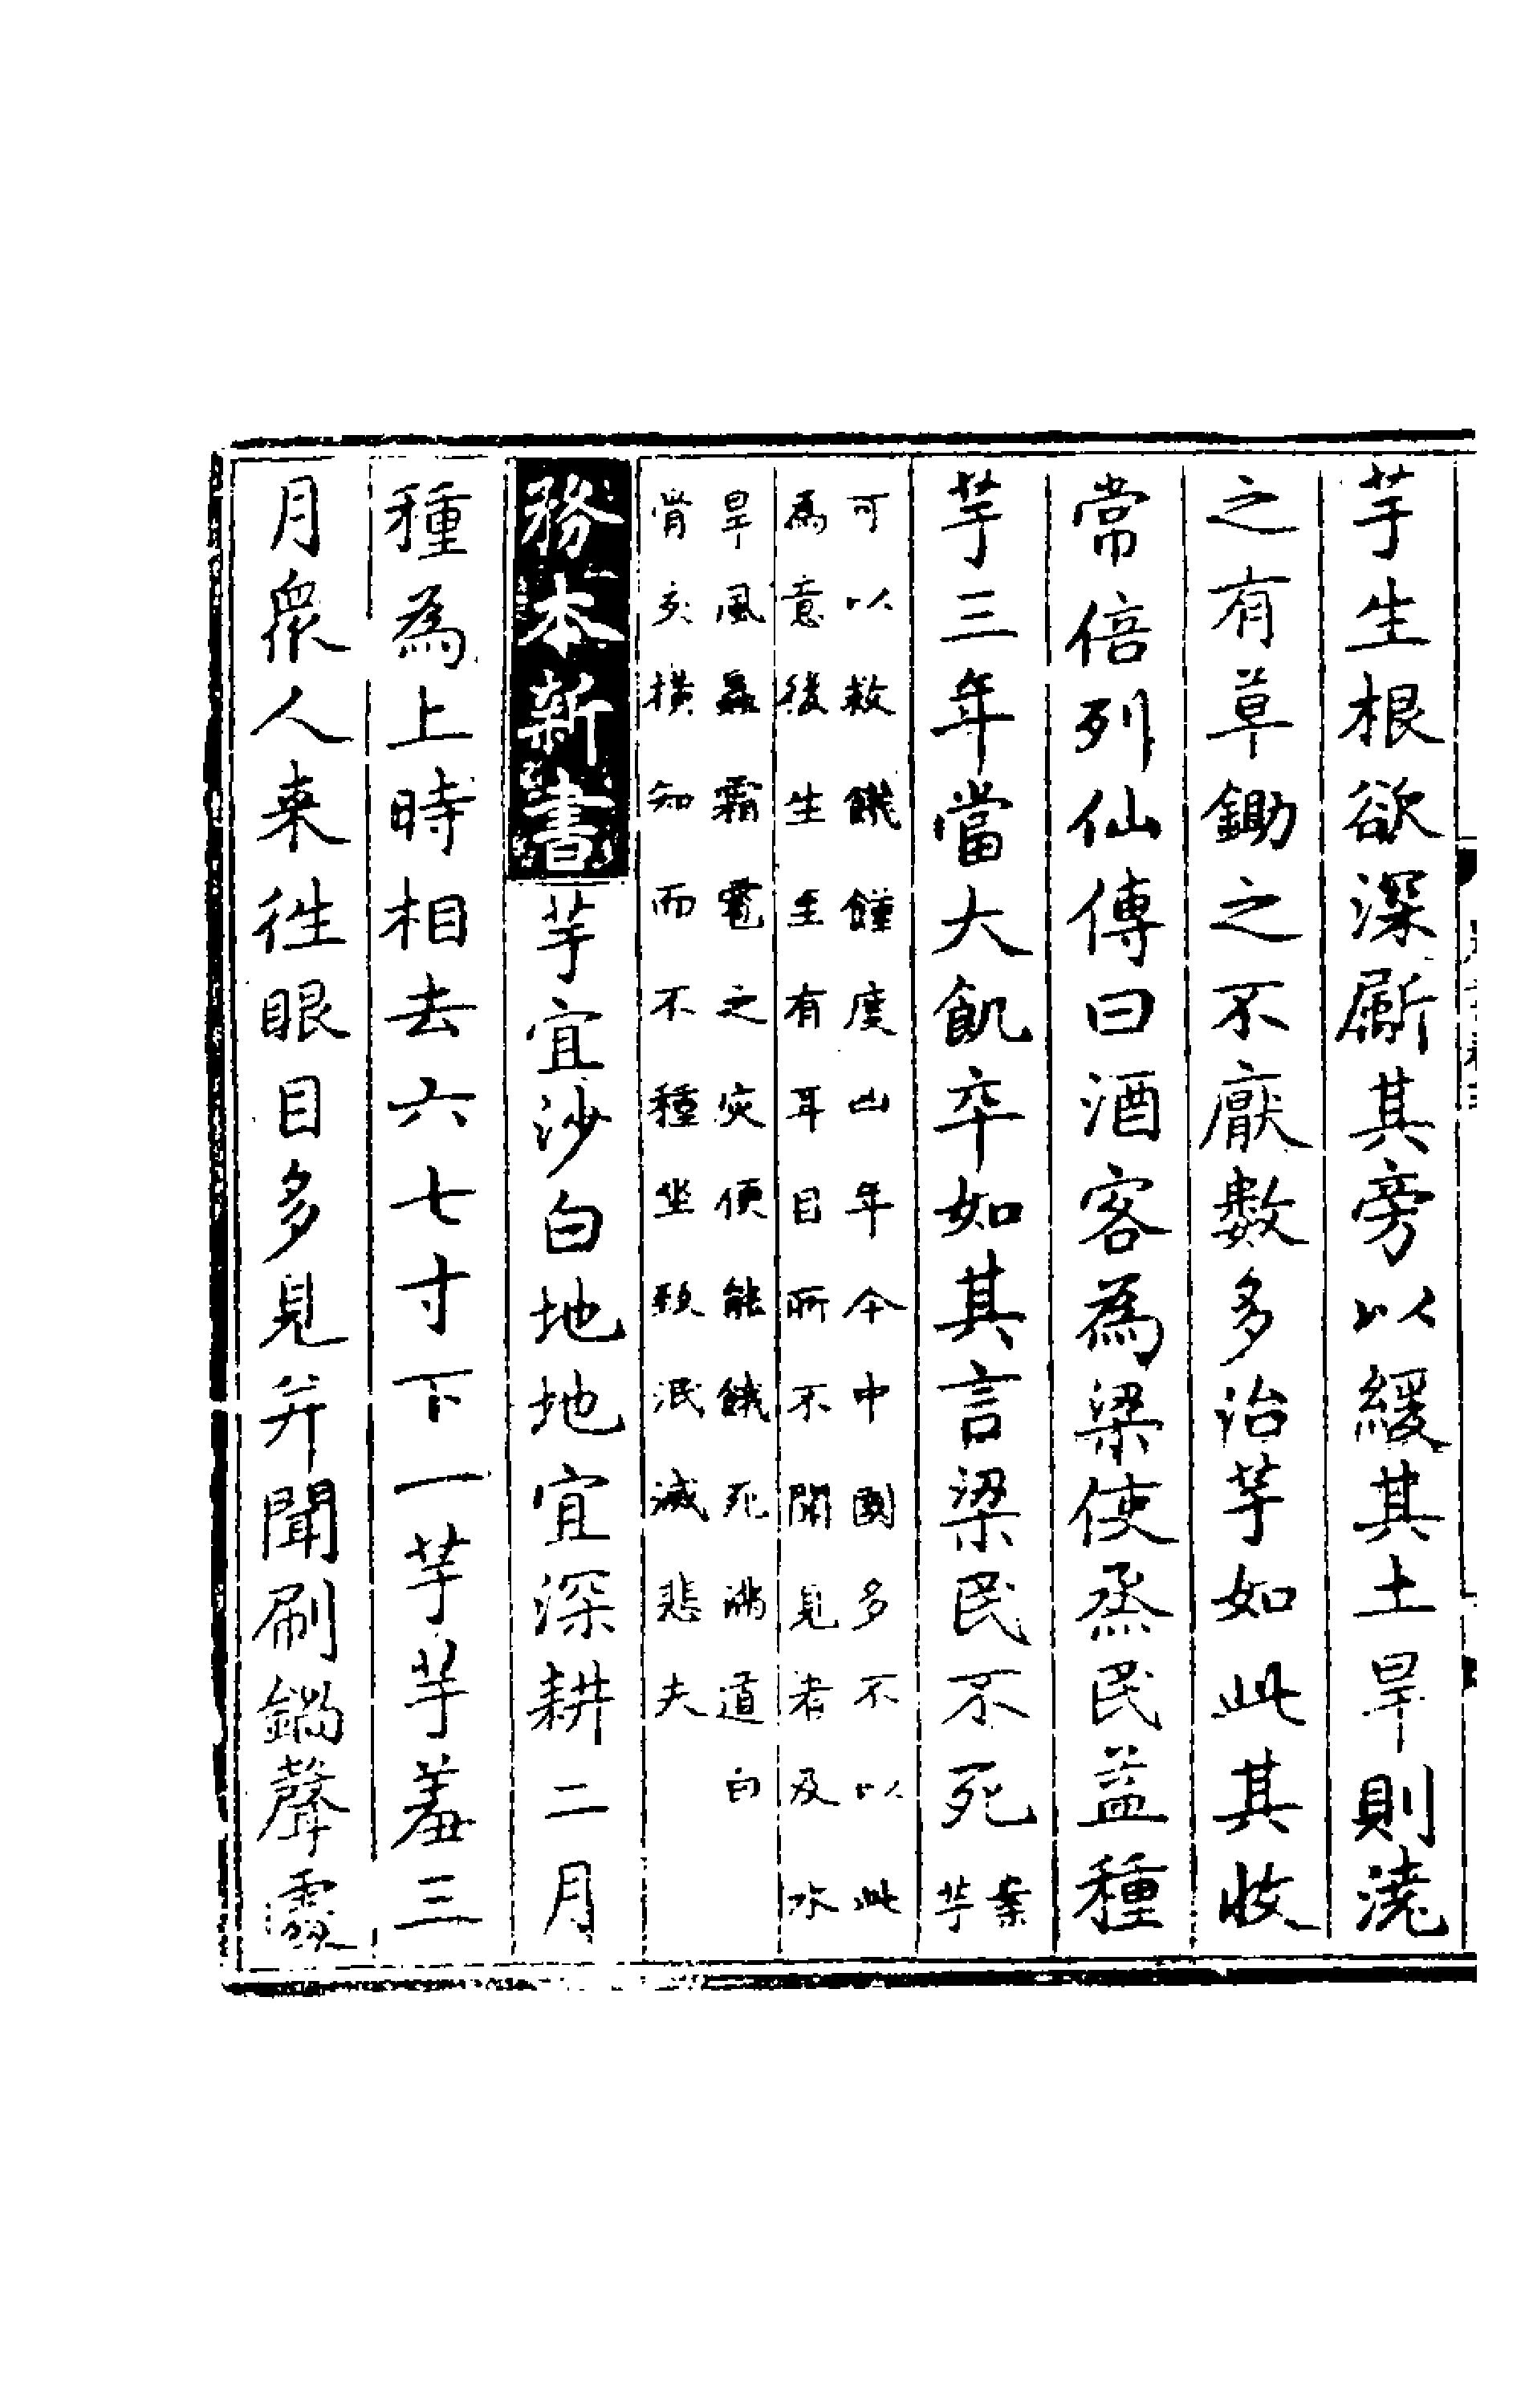 芋生根欲深斸其旁以緩其土旱則澆
之有草鋤之不厭數多治芋如此其收
常倍列仙傳曰酒客為梁使烝民益種
芋三年當大飢卒如其言梁民不死案芋
可以救饑饉度凶年今中國多不以此
為意後生至有耳目所不聞見者及水
旱風蟲霜雹之災便能餓死滿道白
骨交橫知而不種坐致泯滅悲夫
務本新書芋宜沙白地地宜深耕二月
種為上時相去六七寸下一芋芋羞三
月衆人来往眼目多見并聞刷鍋聲處